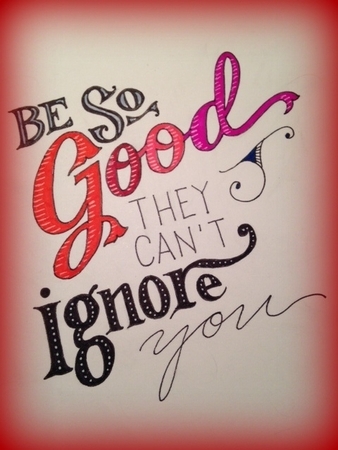 BE SO
Good
THEY
CAN'T
ignore
you